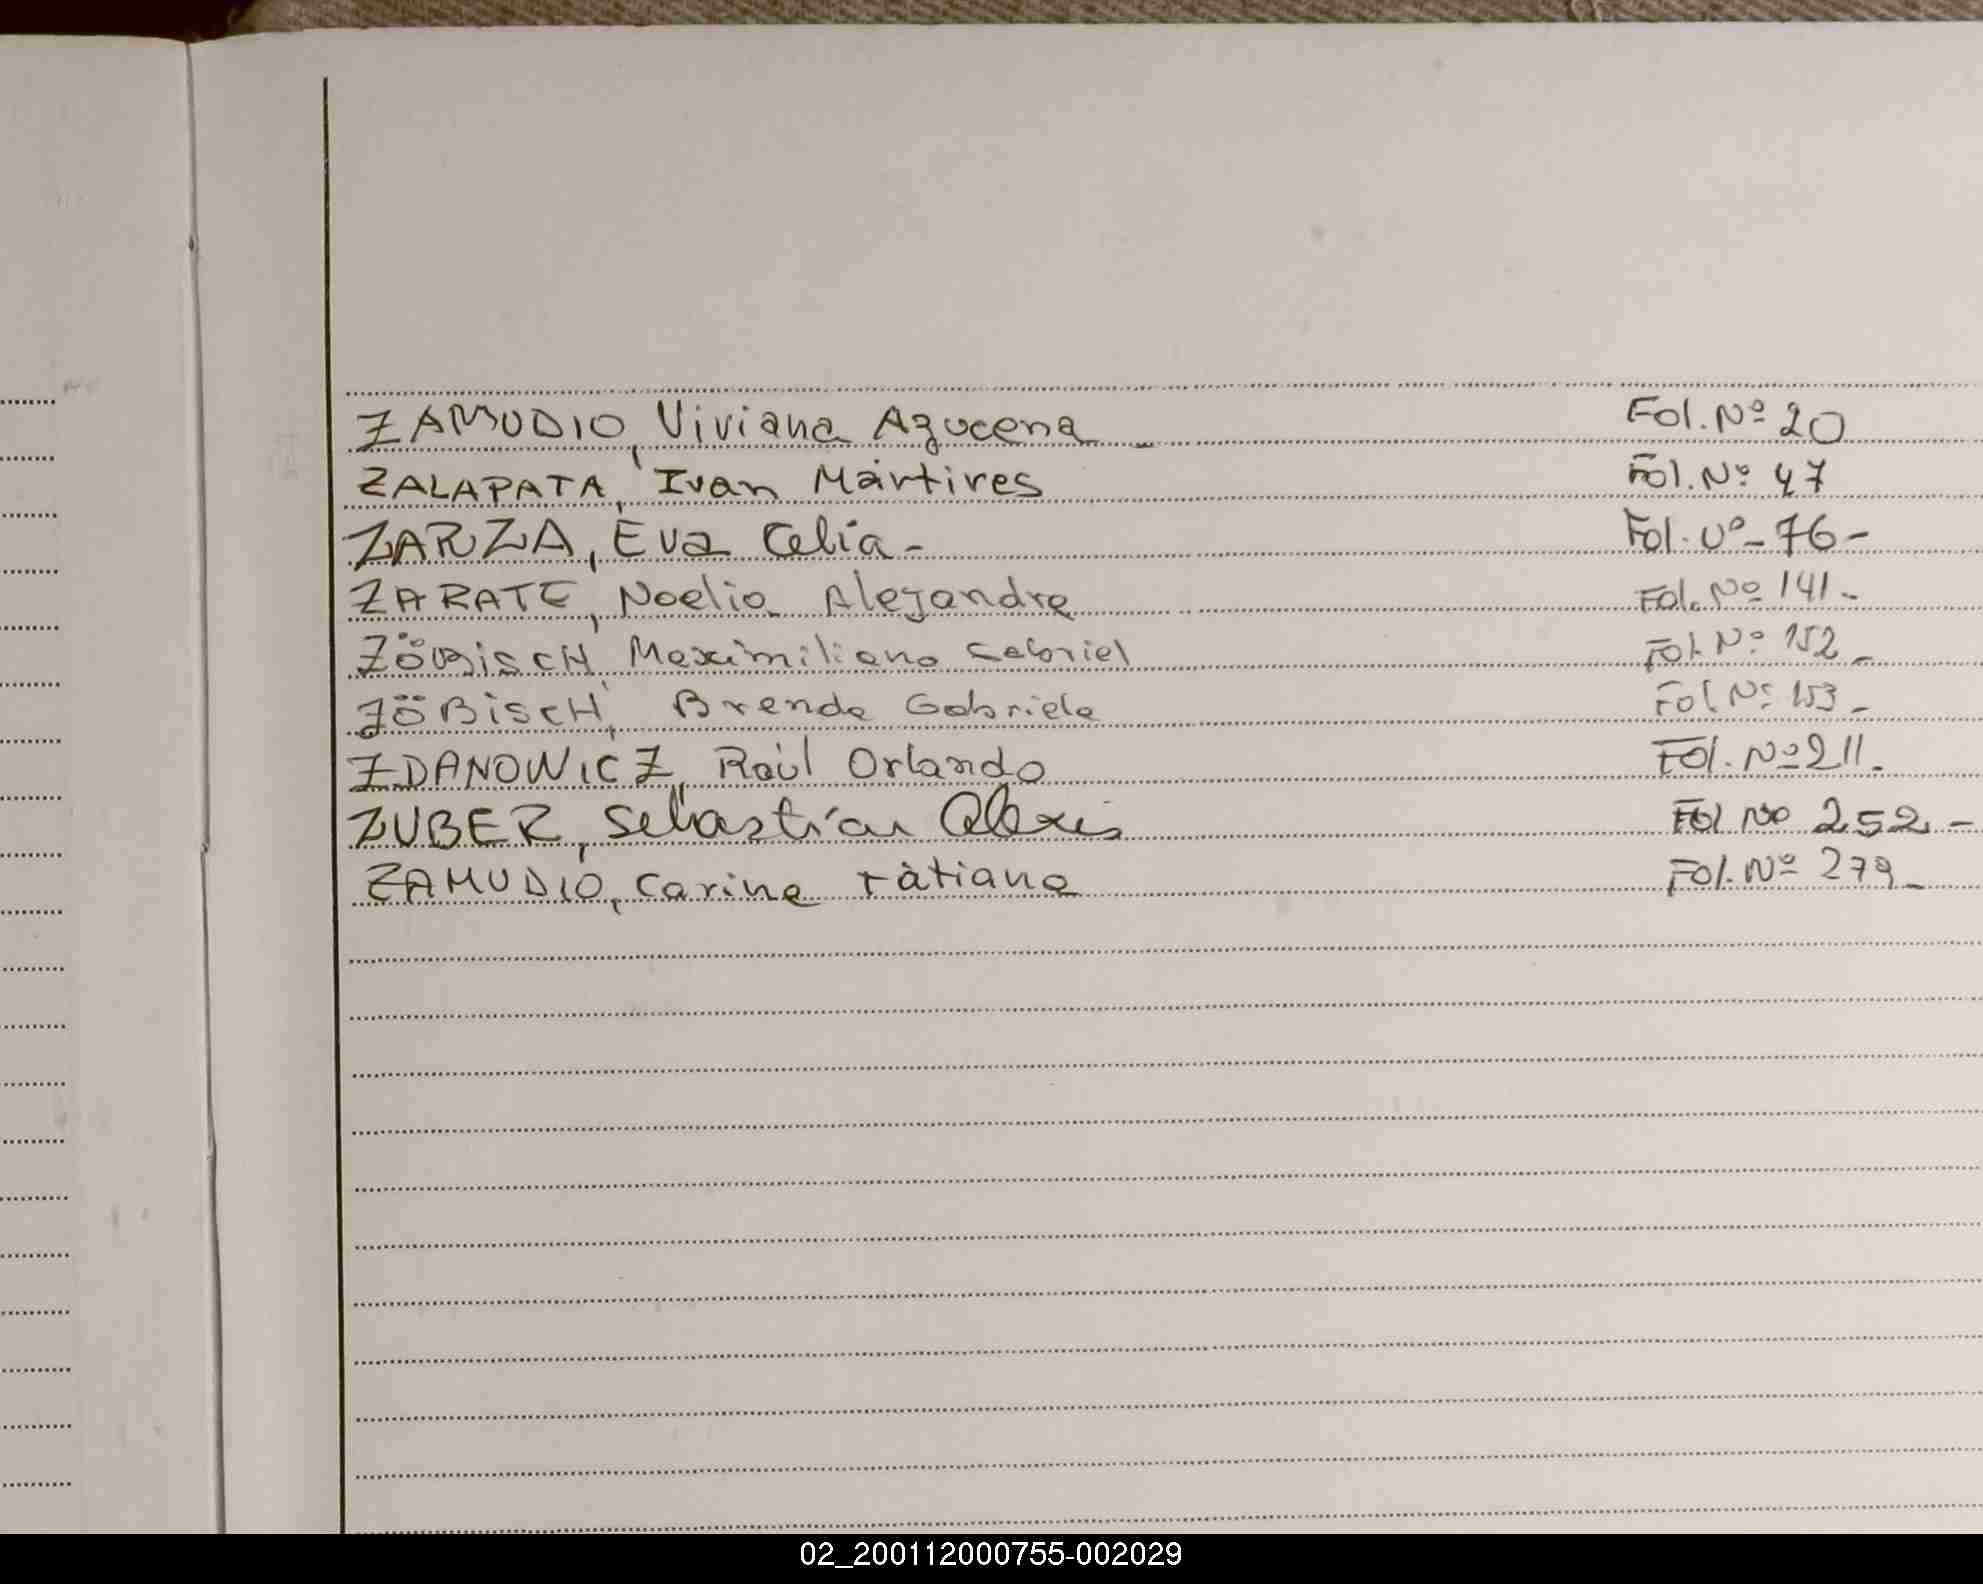 ZAMUDIO, Viviana Azucena - Fol. Nº 20
ZALAPATA, Ivan Mártires Fol. Nº 47
ZARZA, Eva Celia - Fol. Nº - 76 -
ZARATE, Noelia Alejandra Fol. Nº 141 -
ZÖBiscH, Maximiliano Gabriel Fol. Nº 152 -
ZÖBiscH, Brenda Gabriela Fol Nº 153 -
ZDANOWICZ, Raúl Orlando Fol. Nº 211.
ZUBER, Sebastían Alexis Fol Nº 252 -
ZAMUDIO, Carina Tàtiana Fol. Nº 279 -
02_200112000755-002029